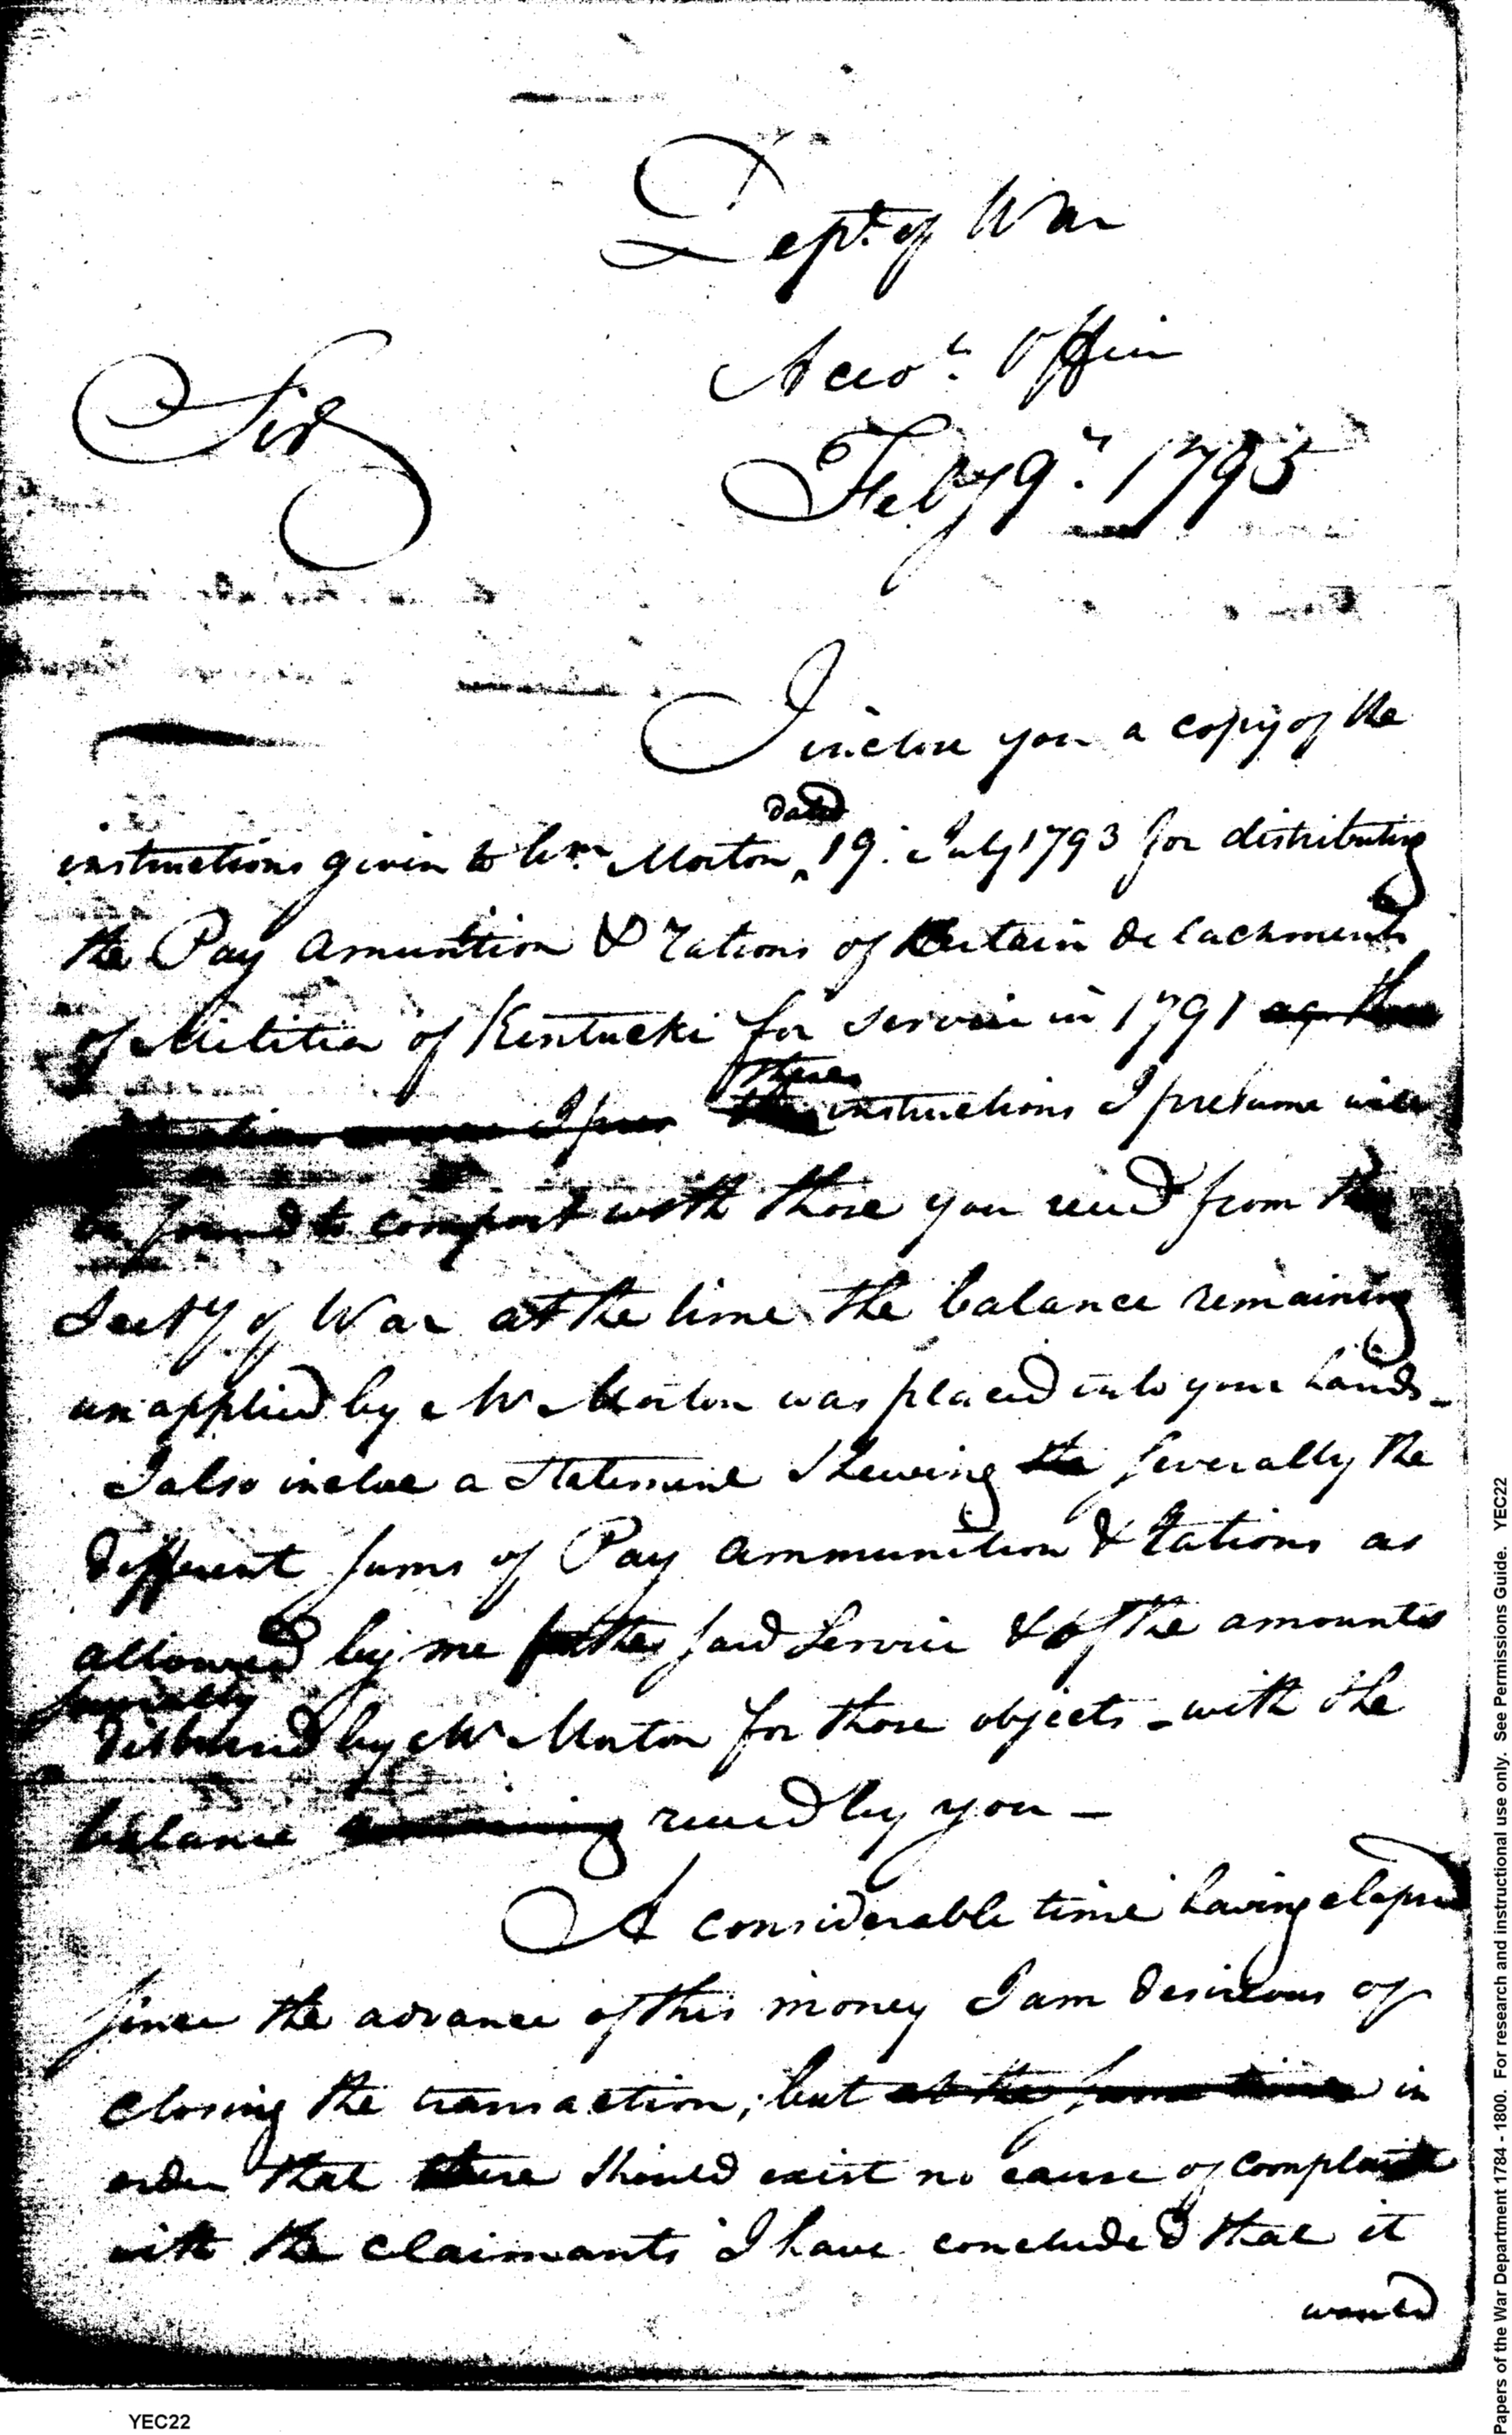 Dept. of War
Accot. Office
Sir
Feby 9th. 1795
I inclose you a copy of the
dated
instructions given to Wm. Morton ^ 19. July 1793 for distributing
the Pay Amuntion & rations of Certain detachments
of Militia of Kentucki for service in 1791
these
I pres instructions I presume will
be found to comport with those you recied from the
Secty of War at the time the balance remaining
unapplied by Mr Morton was placed into your hands -
I also inclose a Statement Shewing the severally the
different sums of Pay Ammunition & rations as
allowed by me for the said Service & of the amounts
severally
disbursed by Mr Morton for those objects - with the
balance remaining recied by you -
A considerable time having elapsed
since the advance of this money I am desireous of
closing the transaction, but at the same time in
order that there should exist no cause of complaint
with the claimants I have concluded that it
would
YEC22
Papers of the War Department 1784 - 1800. For research and instructional use only. See Permissions Guide. YEC22